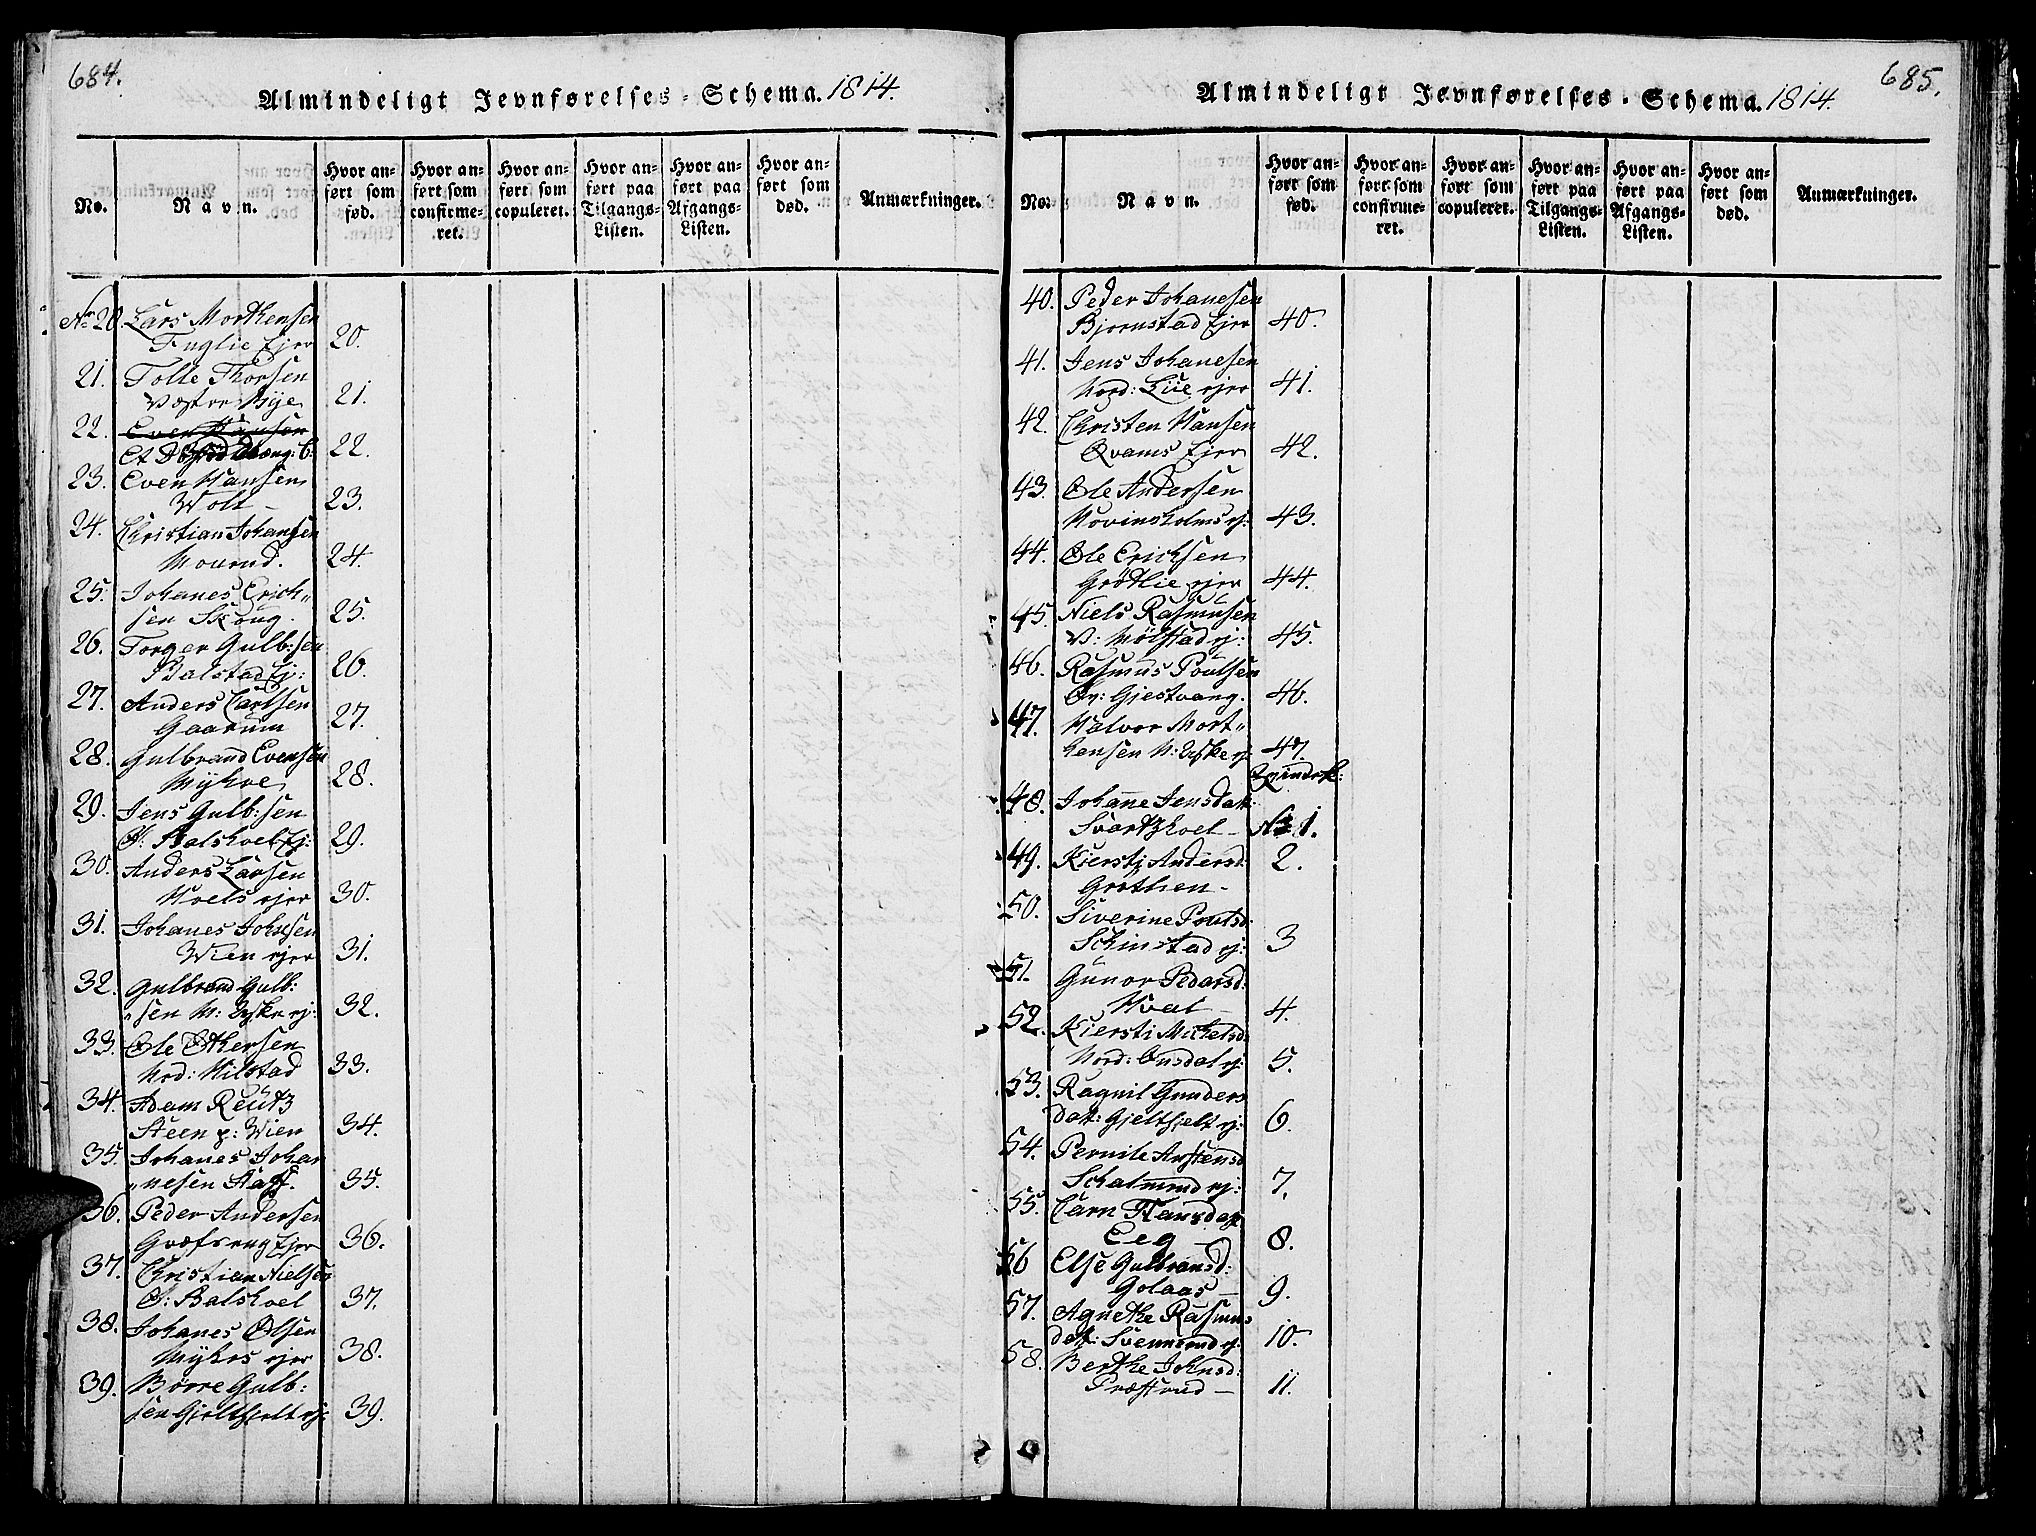 684.
Almindeligt Jevnførelses-Schema. 1814.
No.
Navn.
Hvor an-
ført som
fød.
Hvor an-
ført som
confirme-
ret.
Hvor an-
ført som
copuleret.
Hvor an-
ført paa
Tilgangs-
Listen.
Hvor an-
ført paa
Afgangs-
Listen.
Hvor an-
ført som
død.
Anmærkninger.
No. 20 Lars Morthensen
Fuglie Ejer 20.
21. Tolle Thorsen
Vestre Bye 21.
22. Even Hansen
Et 22.
23. Even Hansen
Wolt - 23.
24. Christian Johansen
Mourud. 24.
25. Johanes Erich„
sen Skoug. 25.
26. Torger Gulb:sen
Balstad Ej: 26.
27. Anders Carlsen
Gaarum 27.
28. Gulbrand Evensen
Myhre 28.
29. Jens Gulb:sen
Ø: Balshoel Ej: 29.
30. Anders Larsen
Hoels ejer 30.
31. Johanes Johnsen
Wien ejer 31.
32. Gulbrand Gulb:
„sen N: Uske ej: 32.
33. Ole Othersen
Nord: Hilstad 33.
34. Adam Reütz
Steen p: Wien 34.
35. Johanes Johan
„nesen Staff. 35.
36. Peder Andersen
Græfseng Ejer 36.
37. Christian Nielsen
Ø: Balshoel 37.
38. Johanes Olsen
Myhrs ejer 38.
39. Børre Gulb:
sen Gjeltfjelt ej: 39.
685.
Almindeligt Jevnførelses-Schema. 1814.
No.
Navn.
Hvor an-
ført som
fød.
Hvor an-
ført som
confirme-
ret.
Hvor an-
ført som
copuleret.
Hvor an-
ført paa
Tilgangs-
Listen.
Hvor an-
ført paa
Afgangs-
Listen.
Hvor an-
ført som
død.
Anmærkninger.
40. Peder Johanesen
Bjornstad Ejer 40.
41. Jens Johanesen
Nord: Lüe ejer 41.
42. Christen Hansen
Qvams Ejer 42.
43. Ole Andersen
Hovinsholms ej: 43.
44. Ole Erichsen
Grøtlie ejer 44.
45. Niels Rasmusen
V: Mølstad ej: 45.
46. Rasmus Poulsen
Øv: Gjestvang. 46.
47. Halvor Mort„
hensen N: Uske ej 47.
Qvindek:
48. Johanne Jensdat:
Svartzhoel - No 1.
49. Kiersti Andersd: 2.
Grothen -
50. Siverine Poulsd:
Schinstad ej: 3
51. Gunor Pedersd:
Hval - 4.
52. Kiersti Michelsd:
Nord: Onsdal ej: 5.
53. Ragnil Gunders
dat: Gjeltfjelt ej: 6.
54. Pernile Arstensd
Schalmrud ej: 7.
55. Carn Hansdat
Eeg - 8.
56 Else Gulbransd:
Golaas - 9.
57. Agnethe Rasmus
dat: Svennerud ej: 10.
58. Berthe Johnsd:
Præstrud - 11.